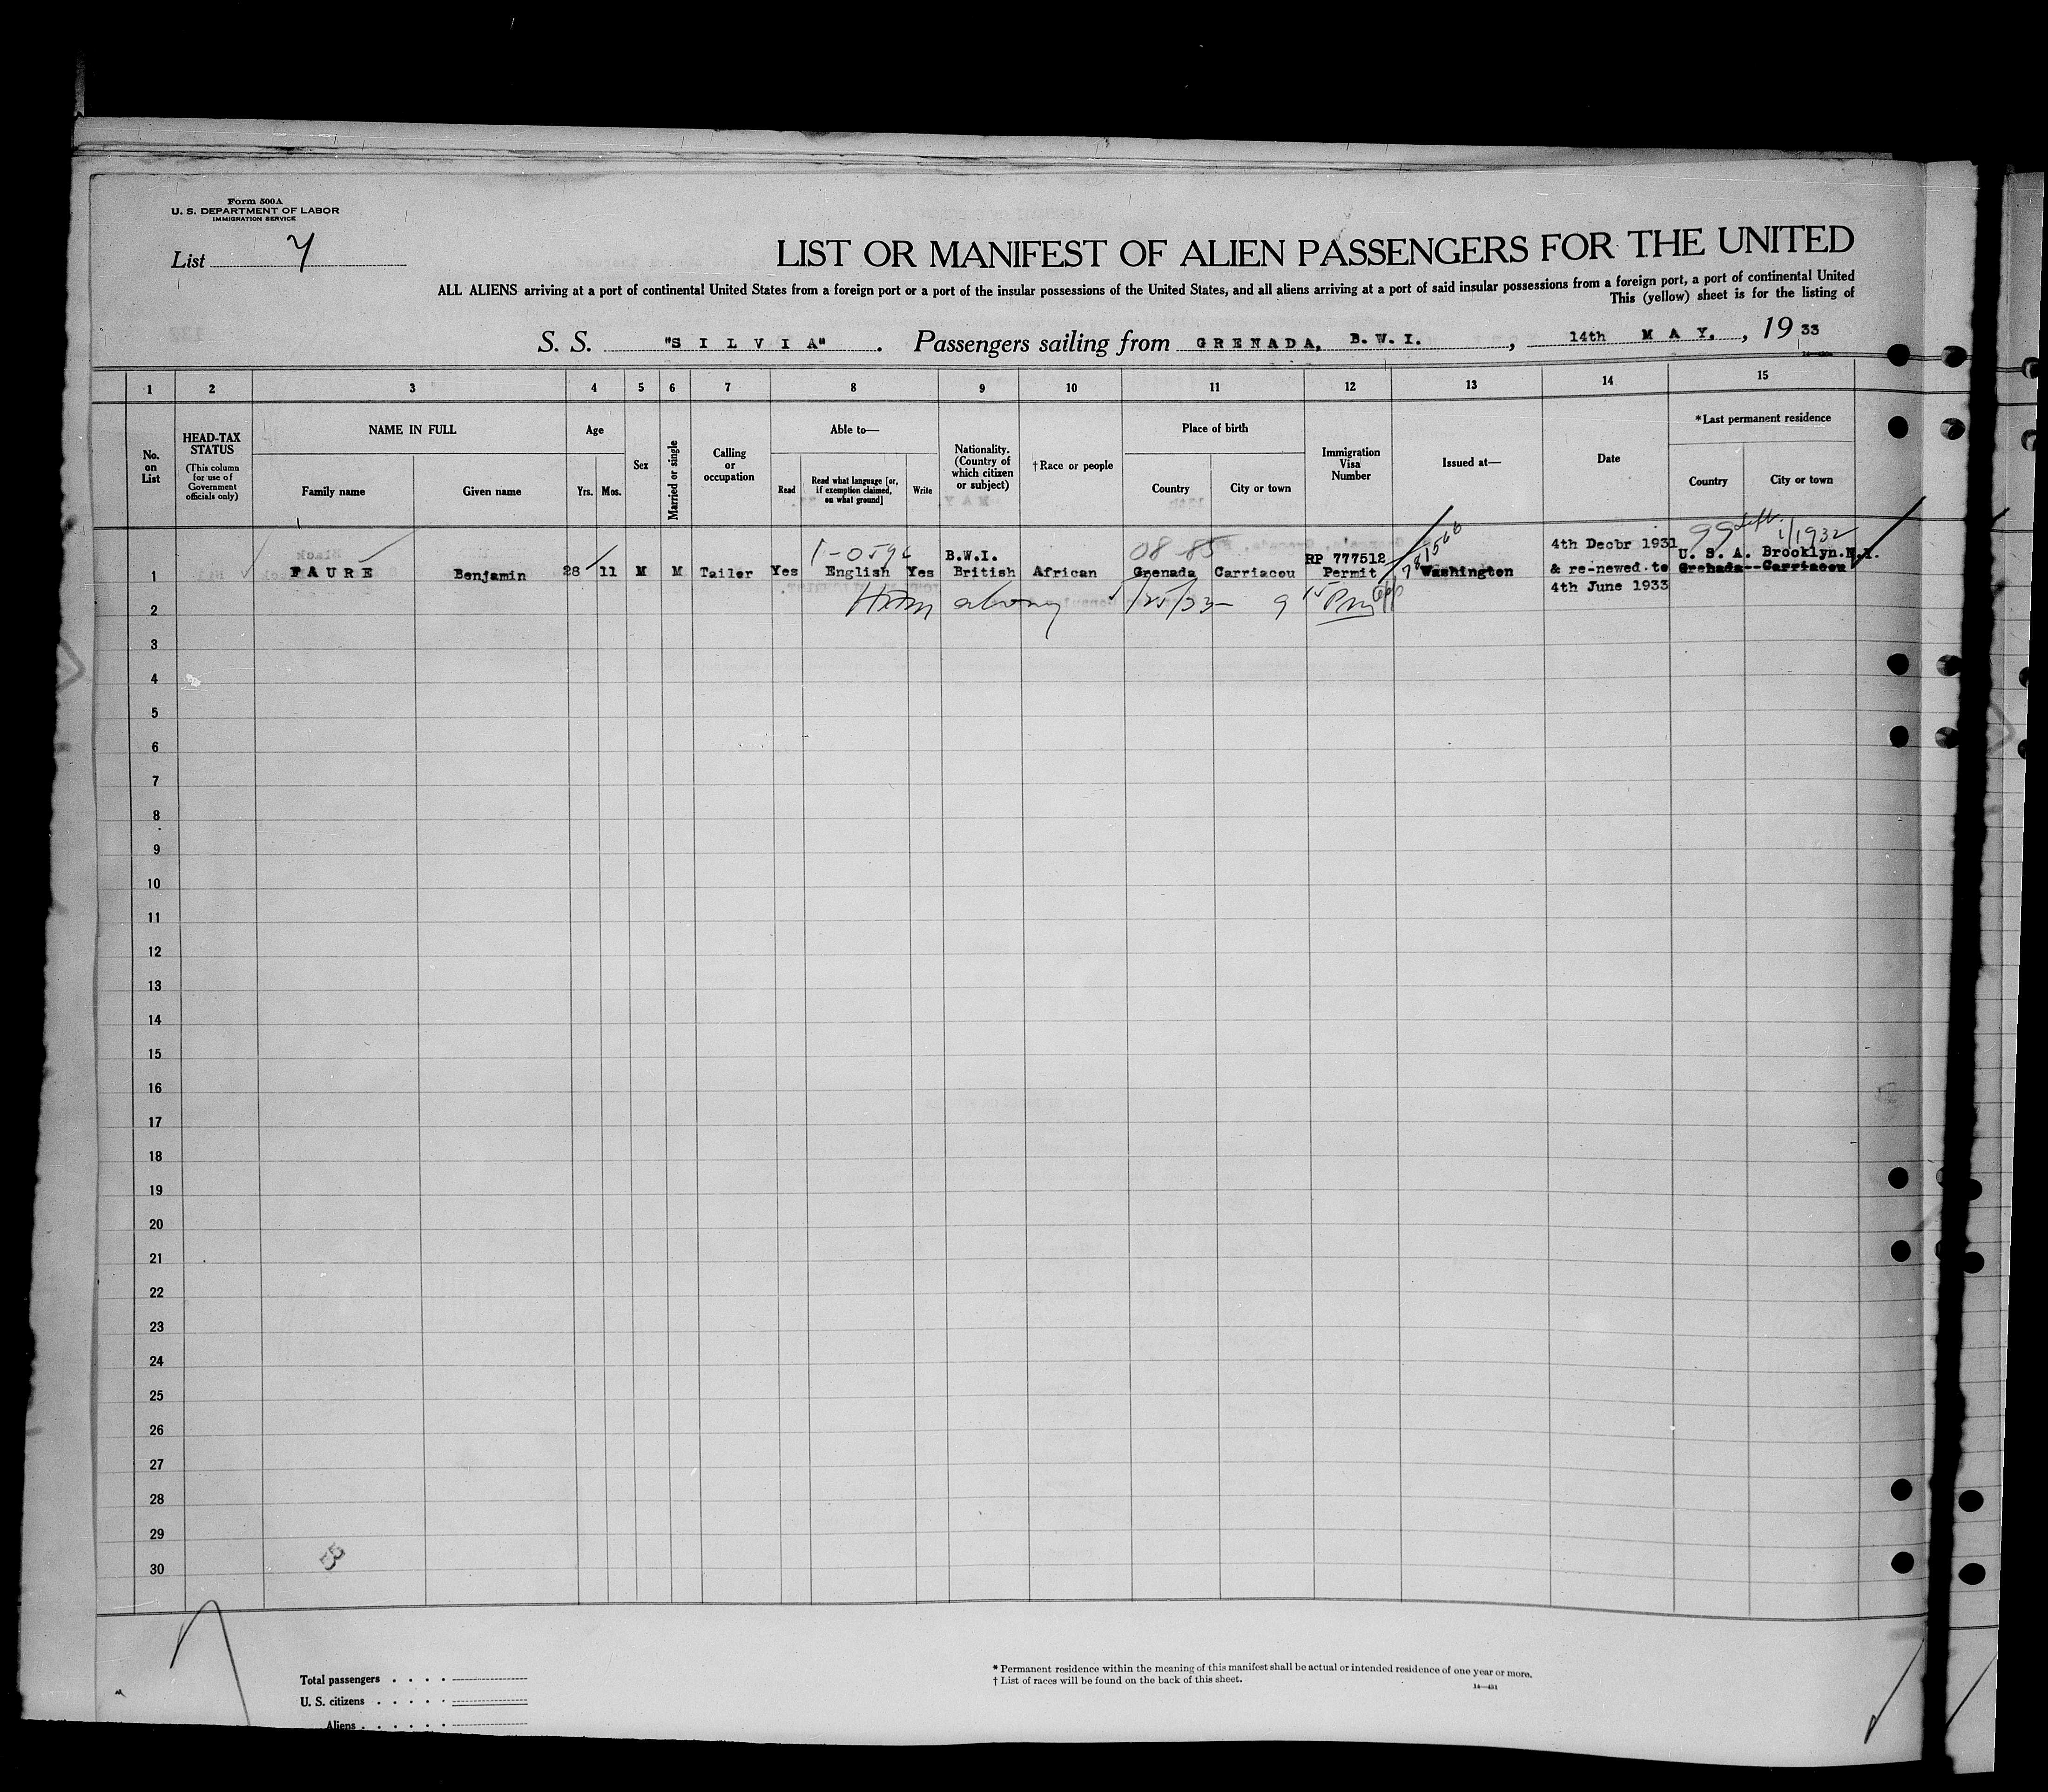 Form 500A
U. S. DEPARTMENT OF LABOR
IMMIGRATION SERVICE
List 7
LIST OR MANIFEST OF ALIEN PASSENGERS FOR THE UNITED
ALL ALIENS arriving at a port of continental United States from a foreign port or a port of the insular possessions of the United States, and all aliens arriving at a port of said insular possessions from a foreign port, a port of continental United
This (yellow) sheet is for the listing of
S. S. "S I L V I A" . Passengers sailing from GRENADA, B.W.I. , 14th M A Y. , 19 33
1 2 3 4 5 6 7 8 9 10 11 12 13 14 15
No. on List
HEAD-TAX STATUS
(This column for use of Government officials only)
NAME IN FULL
Family name
Given name
Age
Yrs. Mos.
Sex
Married or single
Calling or occupation
Able to—
Read
Read what language [or, if exemption claimed, on what ground]
Write
Nationality. (Country of which citizen or subject)
†Race or people
Place of birth
Country
City or town
Immigration Visa Number
Issued at—
Date
*Last permanent residence
Country
City or town
99 Left 1/1932
08-85
B.W.I. RP 777512 4th Decbr 1931 U. S. A. Brooklyn.N.Y.
1 FAURE Benjamin 28 11 M M Tailor Yes English Yes British African Grenada Carriacou Permit Washington & re-newed to Grenada--Carriacou
4th June 1933
2
3
4
5
6
7
8
9
10
11
12
13
14
15
16
17
18
19
20
21
22
23
24
25
26
27
28
29
30
Total passengers . . . .
U. S. citizens . . . . .
Aliens . . . . . .
* Permanent residence within the meaning of this manifest shall be actual or intended residence of one year or more.
† List of races will be found on the back of this sheet.